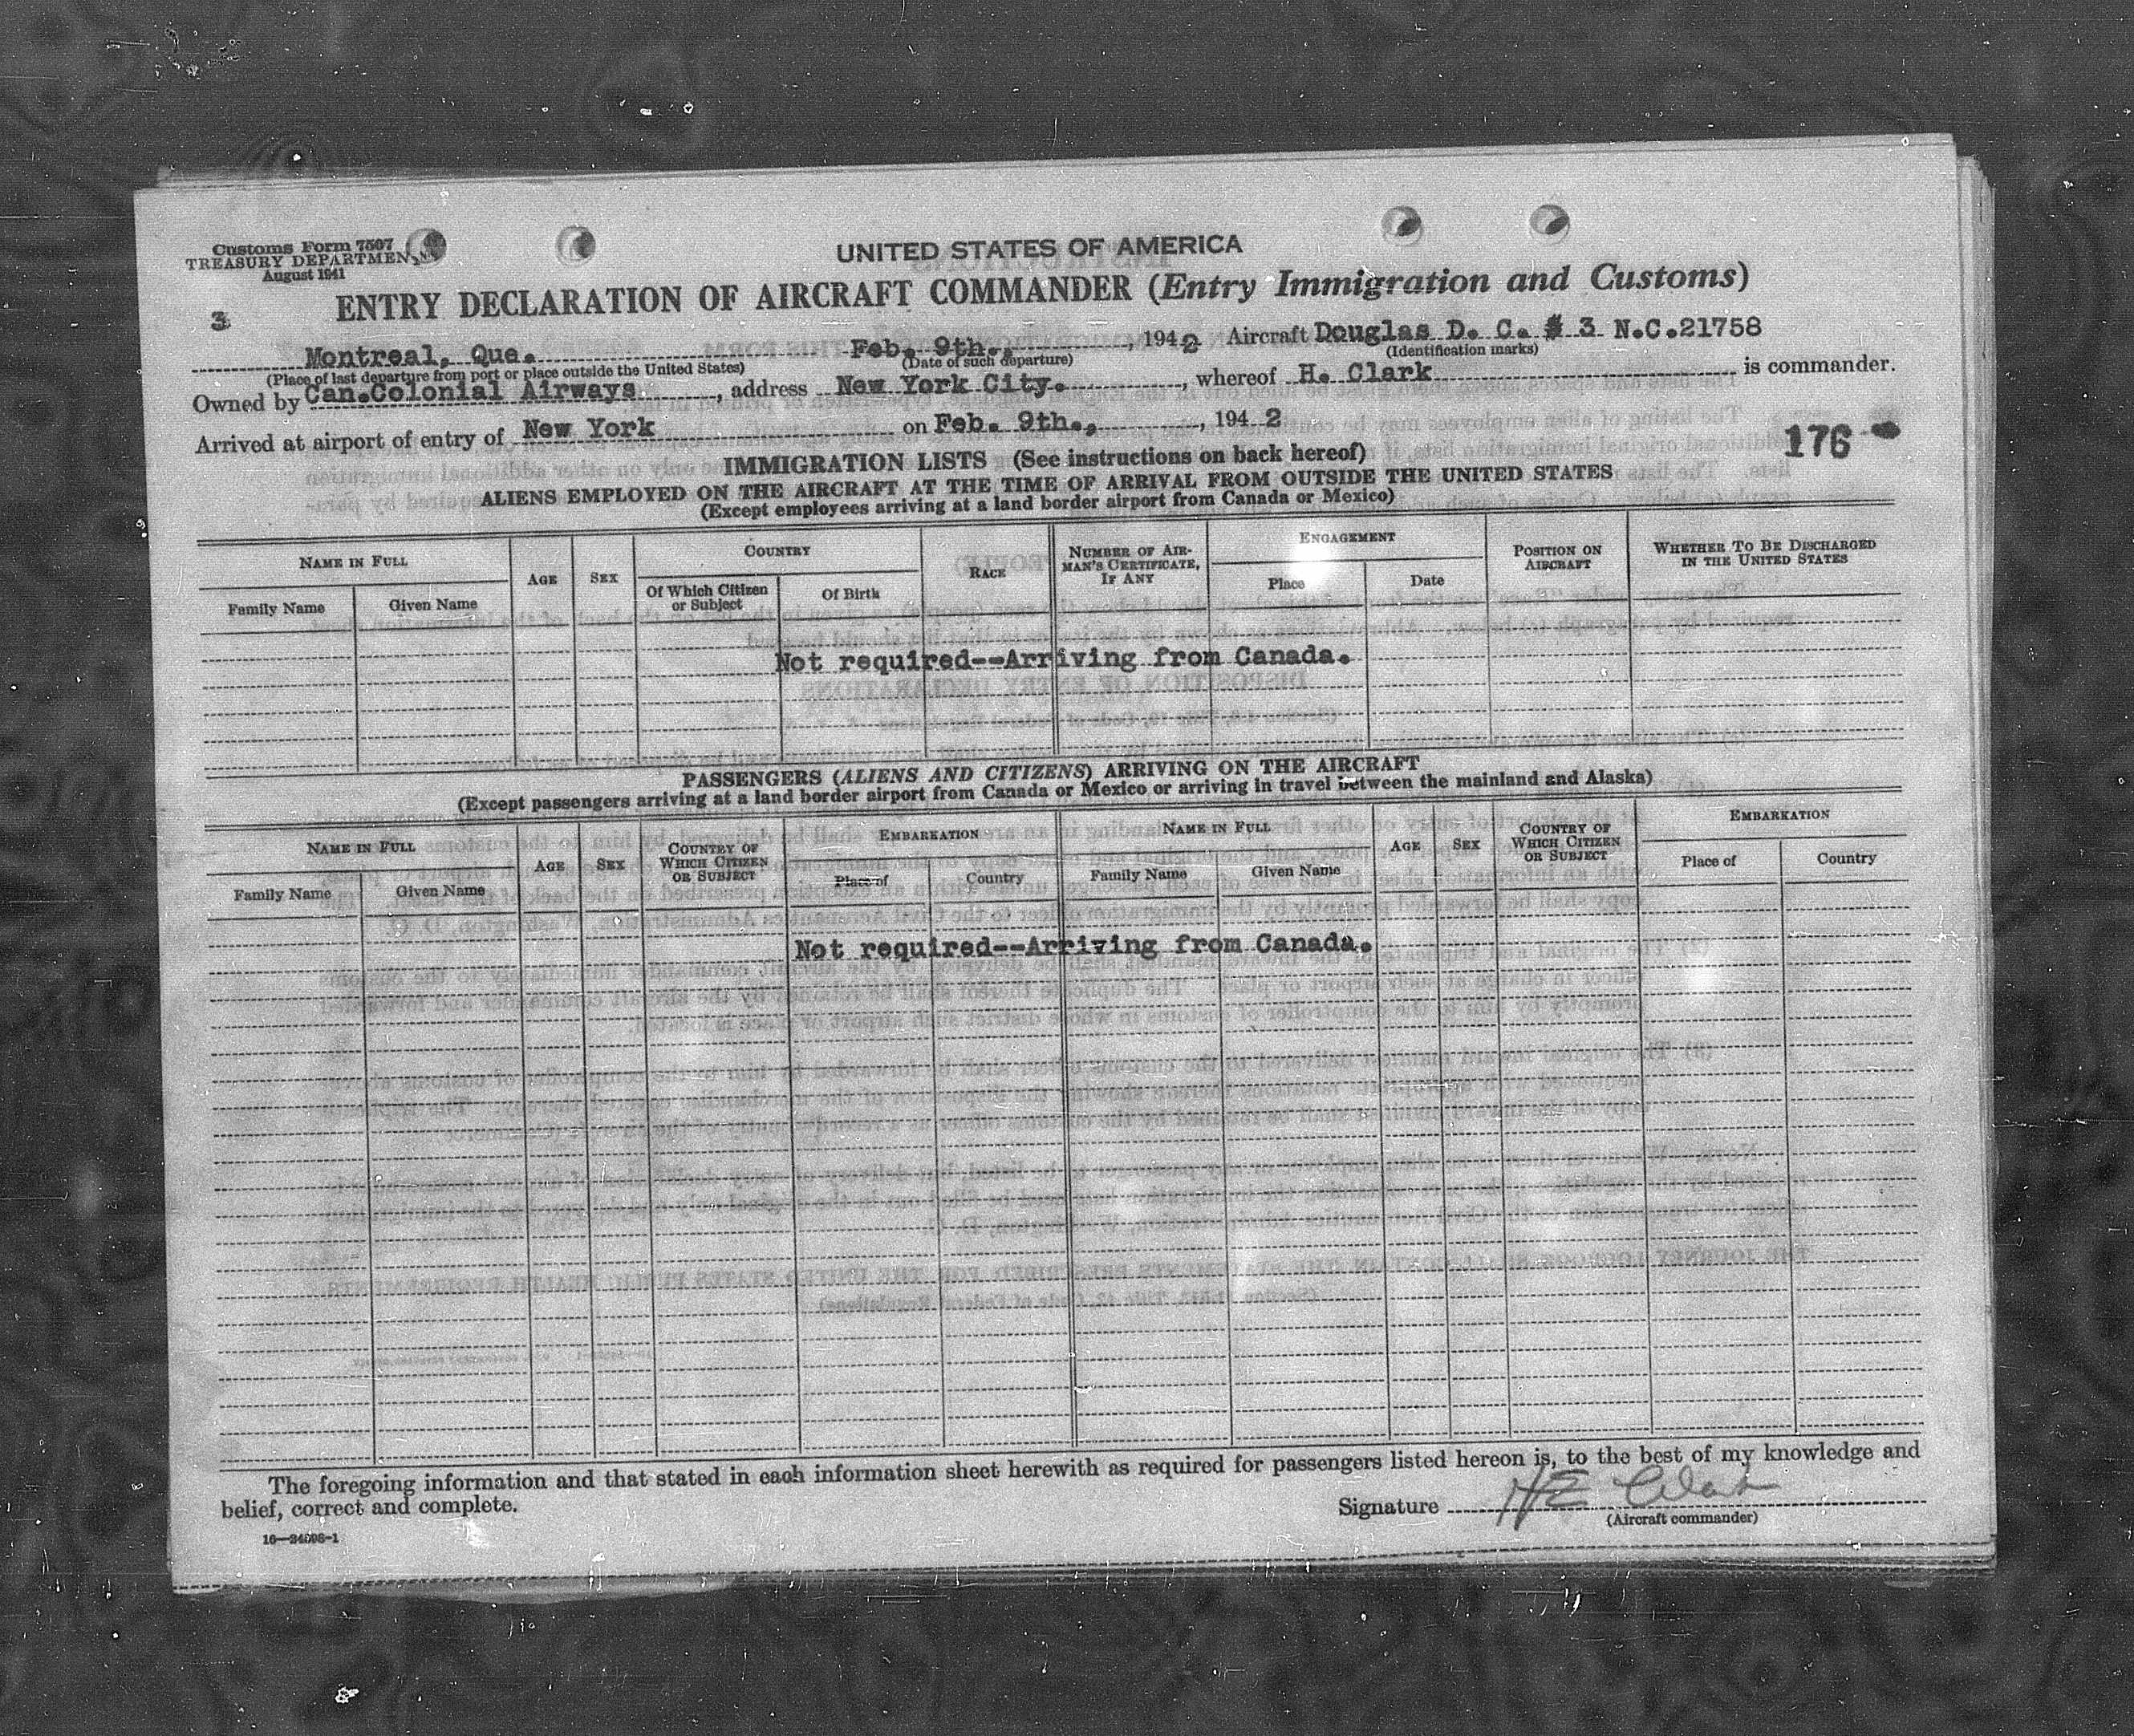 Customs Form 7507
TREASURY DEPARTMENT
August 1941
UNITED STATES OF AMERICA
ENTRY DECLARATION OF AIRCRAFT COMMANDER (Entry Immigration and Customs)
3
Montreal, Que. Feb. 9th., , 1942 Aircraft Douglas D. C. # 3 N.C.21758
(Place of last departure from port or place outside the United States) (Date of such departure) (Identification marks)
Owned by Can.Colonial Airways , address New York City. , whereof H. Clark is commander.
Arrived at airport of entry of New York on Feb. 9th., , 194 2
176
IMMIGRATION LISTS (See instructions on back hereof)
ALIENS EMPLOYED ON THE AIRCRAFT AT THE TIME OF ARRIVAL FROM OUTSIDE THE UNITED STATES
(Except employees arriving at a land border airport from Canada or Mexico)
NAME IN FULL AGE SEX COUNTRY RACE NUMBER OF AIRMAN'S CERTIFICATE, IF ANY ENGAGEMENT POSITION ON AIRCRAFT WHETHER TO BE DISCHARGED IN THE UNITED STATES
Family Name Given Name Of Which Citizen or Subject Of Birth Place Date
Not required--Arriving from Canada.
PASSENGERS (ALIENS AND CITIZENS) ARRIVING ON THE AIRCRAFT
(Except passengers arriving at a land border airport from Canada or Mexico or arriving in travel between the mainland and Alaska)
NAME IN FULL AGE SEX COUNTRY OF WHICH CITIZEN OR SUBJECT EMBARKATION NAME IN FULL AGE SEX COUNTRY OF WHICH CITIZEN OR SUBJECT EMBARKATION
Family Name Given Name Place of Country Family Name Given Name Place of Country
Not required--Arriving from Canada.
The foregoing information and that stated in each information sheet herewith as required for passengers listed hereon is, to the best of my knowledge and
belief, correct and complete.
Signature H E Clark
(Aircraft commander)
16—24098-1